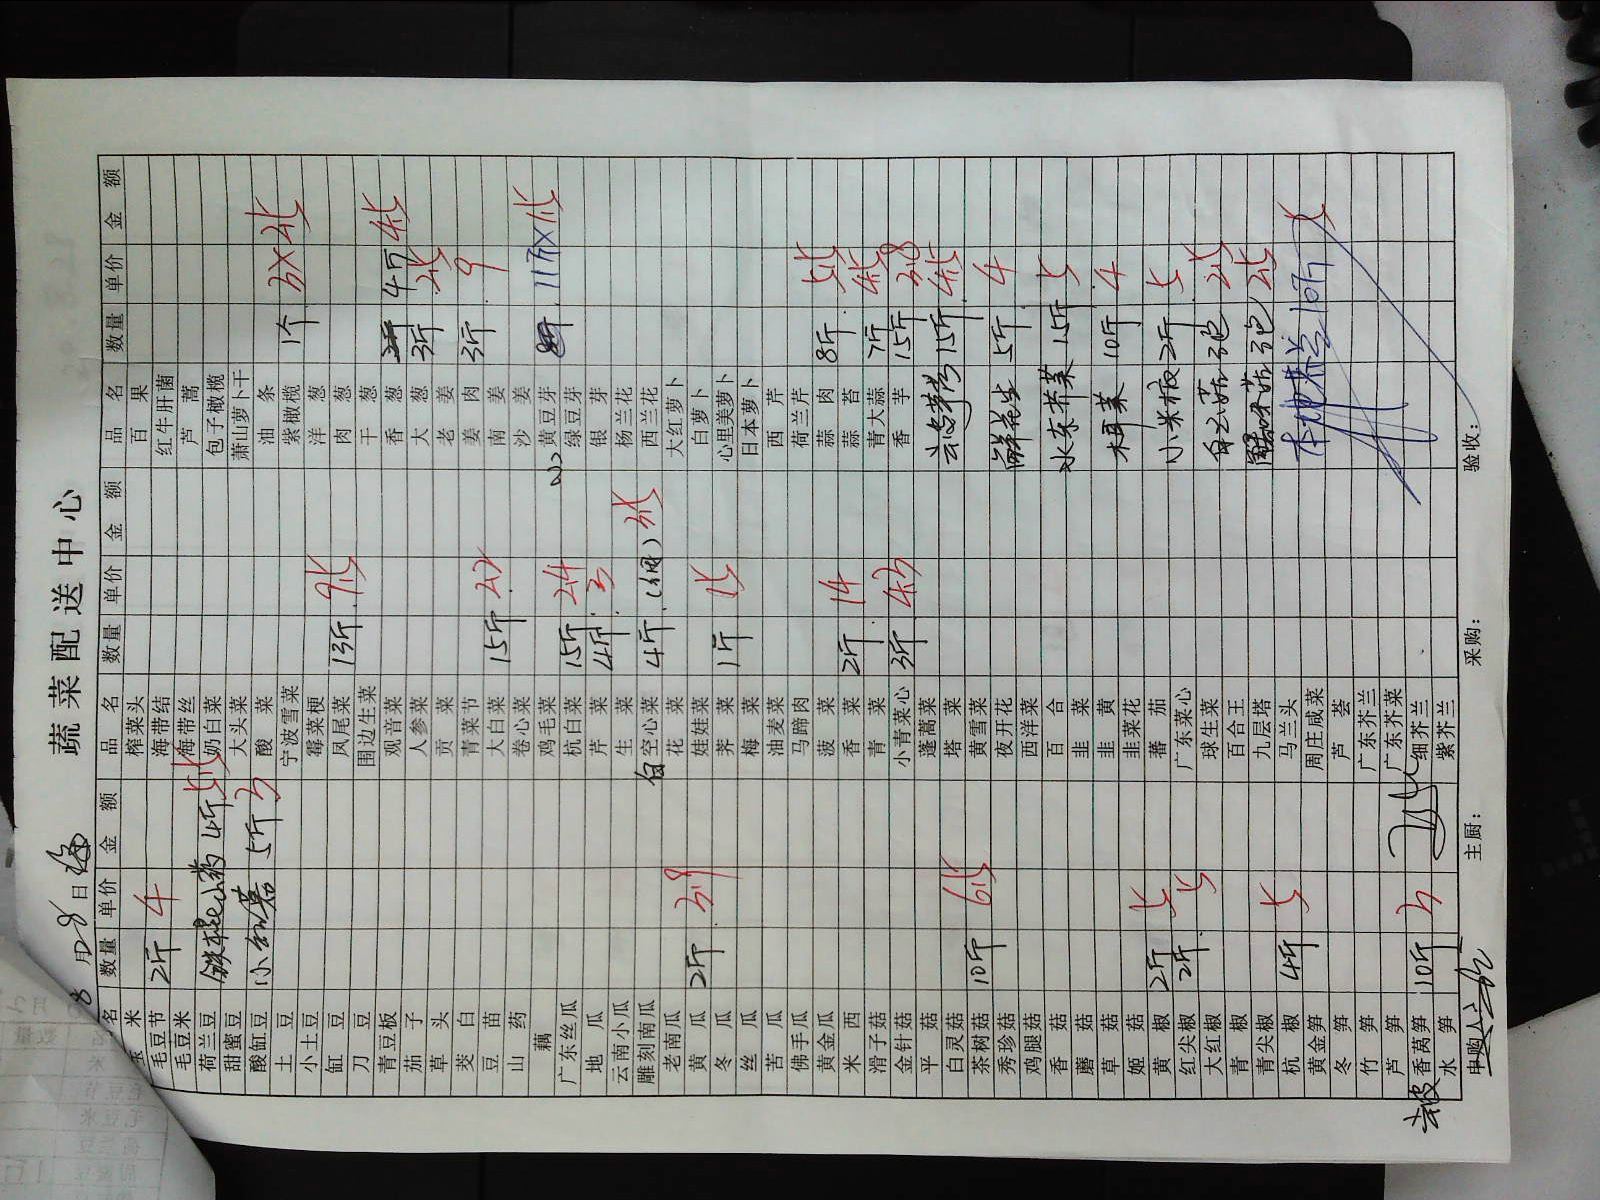 蔬菜配送中心
8月28日
品名 数量 单价 金额 品名 数量 单价 金额 品名 数量 单价 金额
玉米 榨菜头 百果
毛豆节 2斤 4 海带结 红牛肝菌
毛豆米 海带丝 芦蒿
荷兰豆 铁棍山药 4斤 奶白菜 包子橄榄
甜蜜豆 大头菜 萧山萝卜干
酸缸豆 小红薯 5斤 3 酸菜 油条
土豆 宁波雪菜 紫橄榄 1个
小土豆 霉菜梗 洋葱
缸豆 凤尾菜 13斤 肉葱
刀豆 围边生菜 干葱
青豆板 观音菜 香葱 4斤 4.5
茄子 人参菜 大葱 3斤 2.5
草头 贡菜 老姜
茭白 青菜节 姜肉 3斤 9
豆苗 大白菜 15斤 2.2 南姜
山药 卷心菜 沙姜
藕 鸡毛菜 黄豆芽
广东丝瓜 杭白菜 15斤 2.4 绿豆芽
地瓜 芹菜 4斤 3 银芽
云南小瓜 生菜 杨兰花
雕刻南瓜 白空心菜 4斤 西兰花
老南瓜 花菜 大红萝卜
黄瓜 2斤 3.9 娃娃菜 白萝卜
冬瓜 荠菜 1斤 心里美萝卜
丝瓜 梅菜 日本萝卜
苦瓜 油麦菜 西芹
佛手瓜 马蹄肉 荷兰芹
黄金瓜 菠菜 蒜肉 8斤 5.5
米西 香菜 2斤 14 蒜苔
滑子菇 青菜 青大蒜 7斤 4.5
金针菇 小青菜心 3斤 4.3 香芋 15斤 3.8
平菇 蓬蒿菜 去皮莴笋 15斤 4.5
白灵菇 塔菜
茶树菇 10斤 6.5 黄雪菜
秀珍菇 夜开花 鲜花生 5斤 4
鸡腿菇 西洋菜
香菇 百合 水东芥菜 15斤 5
蘑菇 韭菜
草菇 韭黄 木耳菜 10斤 4
姬菇 韭菜花
黄椒 2斤 5 蕃茄 小米椒 2斤 5
红尖椒 2斤 5 广东菜心
大红椒 球生菜 白玉菇 3包 2.5
青椒 百合王
青尖椒 九层塔 蟹味菇 3包 2.5
杭椒 4斤 5 马兰头 本地芥兰 10斤
黄金笋 周庄咸菜
冬笋 芦荟
竹笋 广东芥兰
芦笋 广东芥菜
去皮香莴笋 10斤 3 细芥兰
水笋 紫芥兰
申购人: 主厨: 采购: 验收: